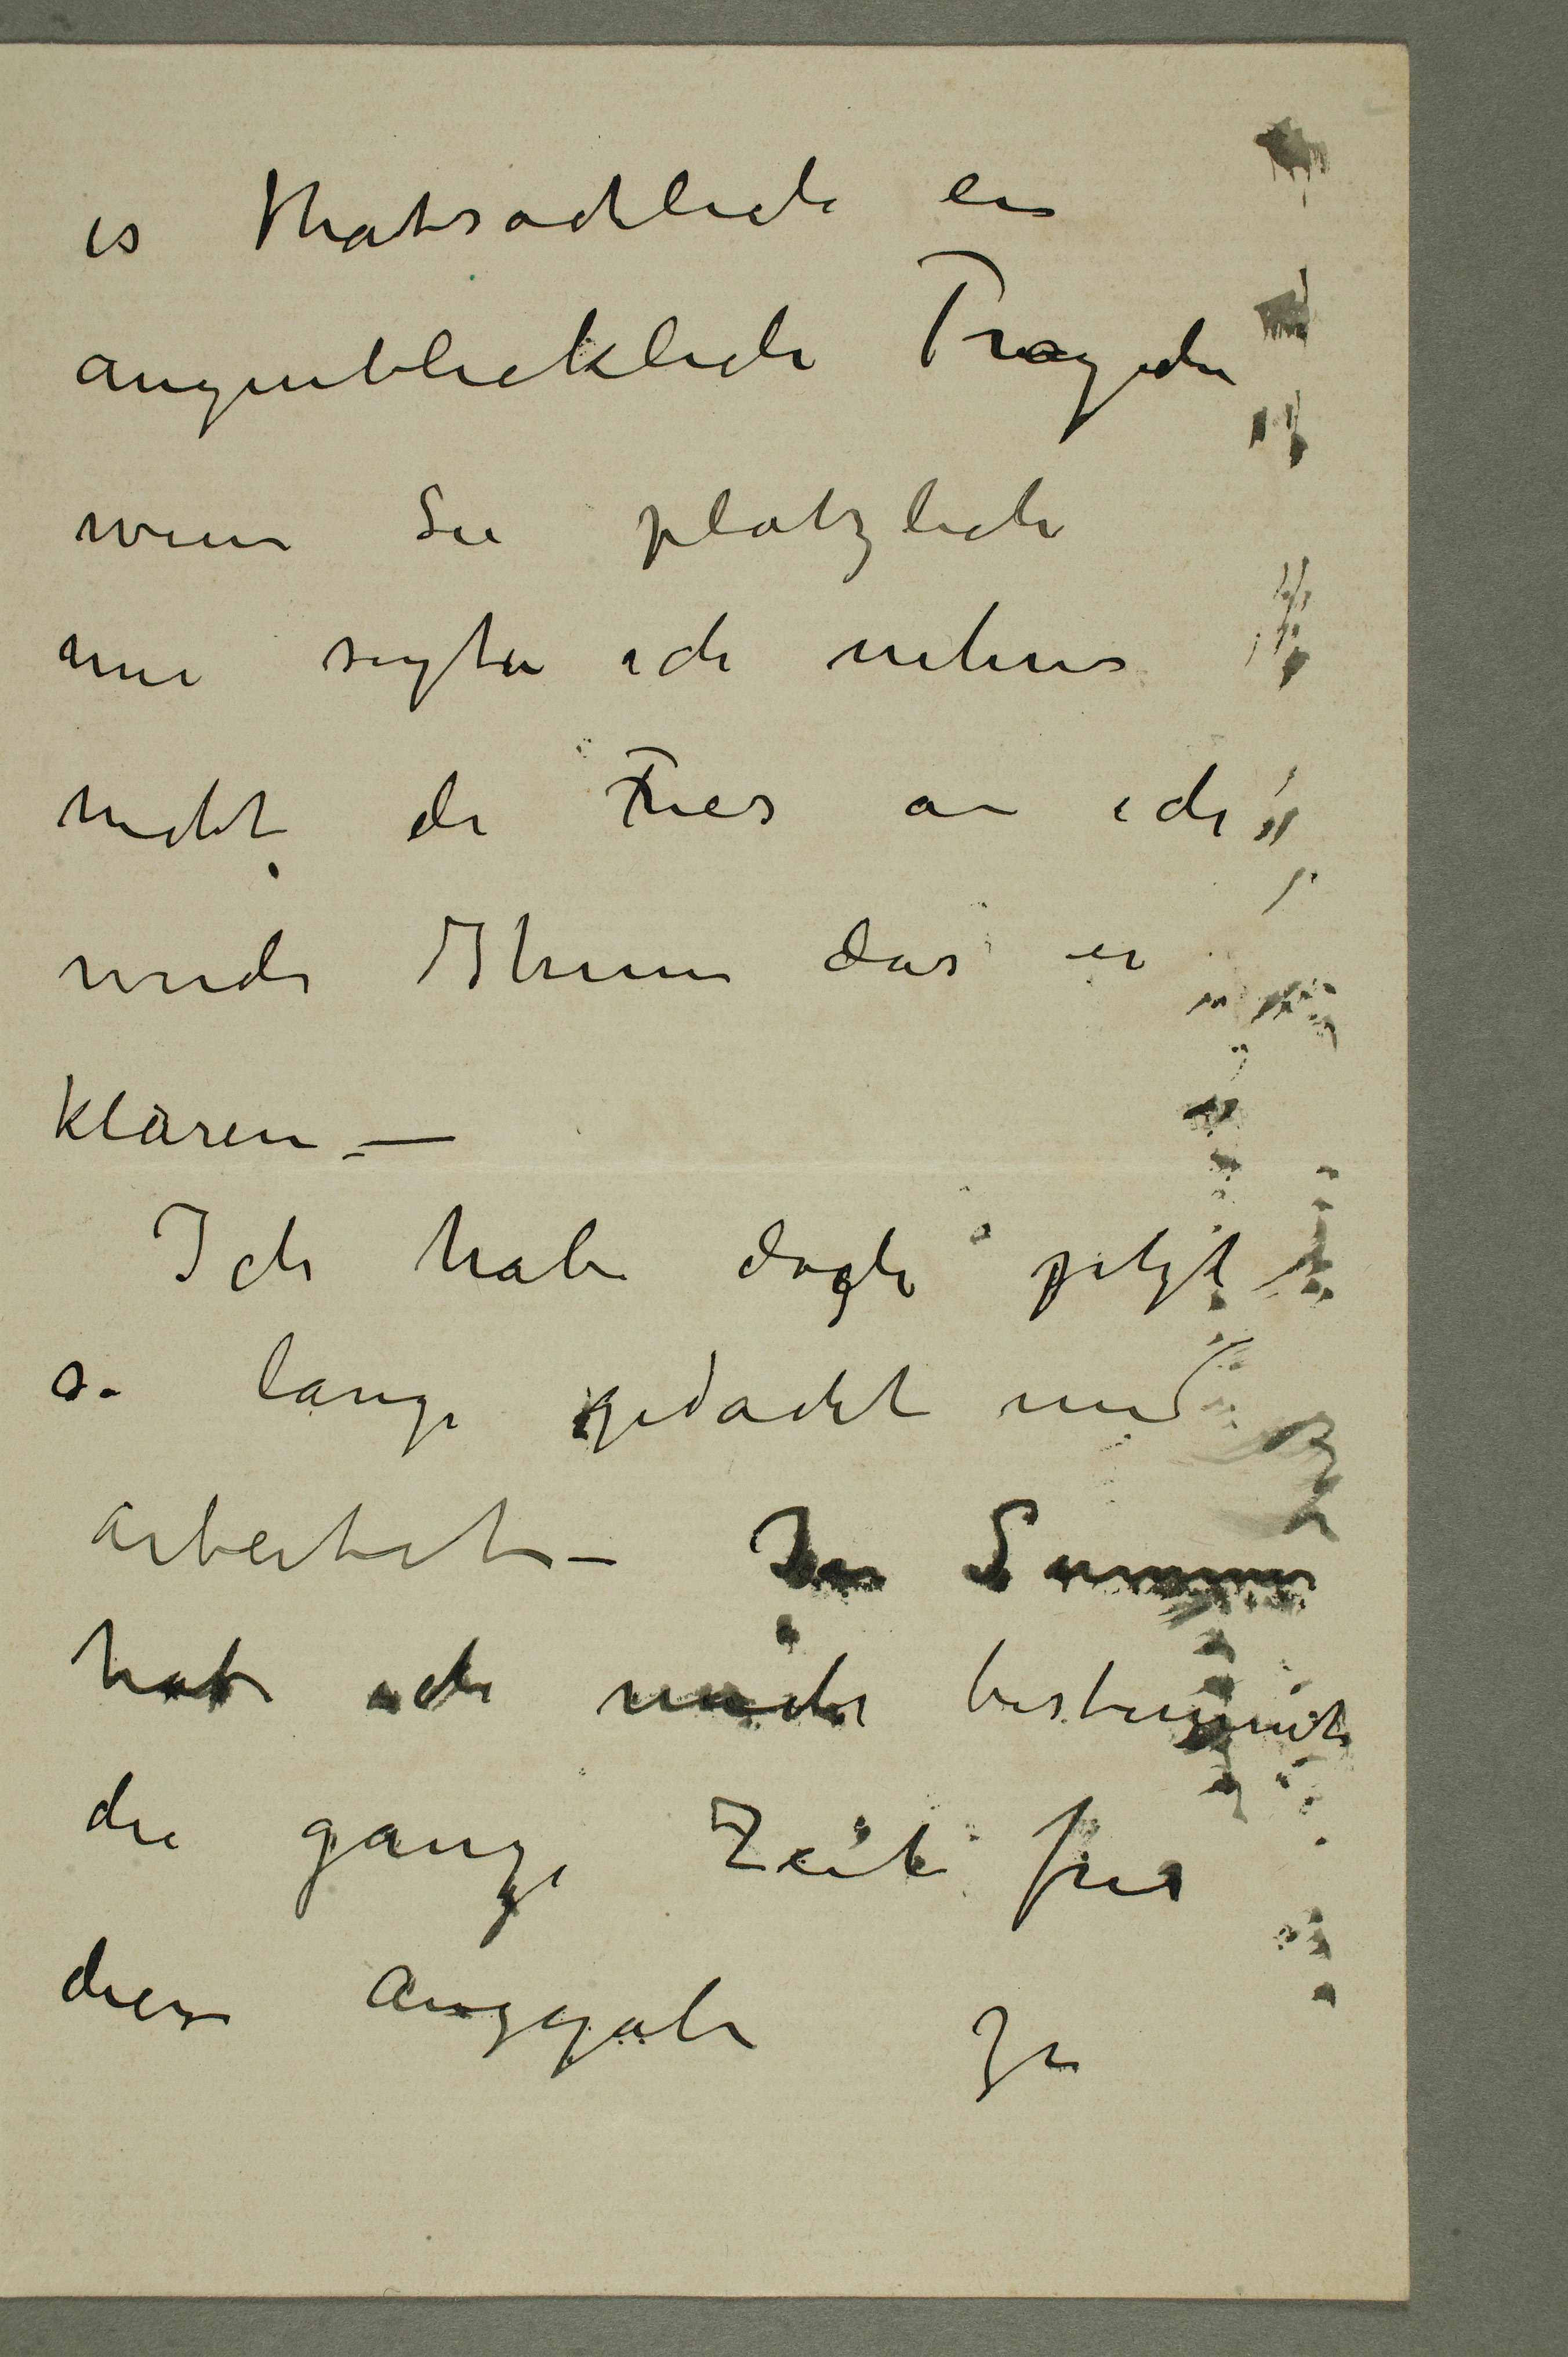 es thatsachlich ein
augenblickliche Tragedie
wenn Sie platzlich
mir sagten ich nehme
nicht de Fries an ich
werde Ihnen das er
klären –
Ich habe dogh jetzt
so lange gedacht und
arbeitet – Im Summer
habe ich mich bestimmt
die ganze Zeit fur
diese Auggabe zu